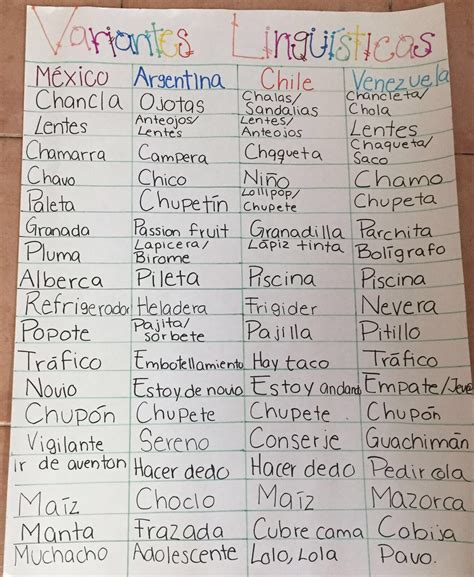 Variantes Lingüísticas
México Argentina Chile Venezuela
Chancla Ojotas Chalas/ Sandalias Chancleta/ Chola
Lentes Anteojos/ Lentes Lentes/ Anteojos Lentes
Chamarra Campera Chaqueta Chaqueta/ Saco
Chavo Chico Niño Chamo
Paleta Chupetín Lollipop/ Chupete Chupeta
Granada Passion fruit Granadilla Parchita
Pluma Lapicera/ Birome Lápiz tinta Bolígrafo
Alberca Pileta Piscina Piscina
Refrigerador Heladera Frigider Nevera
Popote Pajita/ sorbete Pajilla Pitillo
Tráfico Embotellamiento Hay taco Tráfico
Novio Estoy de novio Estoy andando Empate/
Chupón Chupete Chupete Chupón
Vigilante Sereno Conserje Guachimán
ir de aventon Hacer dedo Hacer dedo Pedir cola
Maíz Choclo Maíz Mazorca
Manta Frazada Cubre cama Cobija
Muchacho Adolescente Lolo, Lola Pavo.